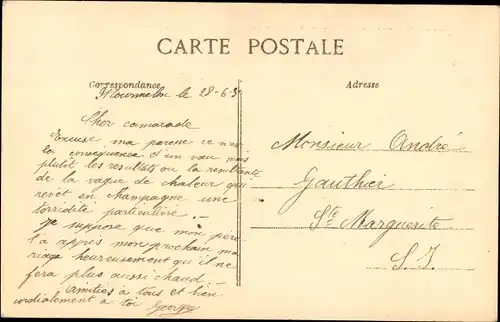 CARTE POSTALE
Correspondance
Adresse
le 28-6-3
Cher camarade
Excuse ma paresse ce n'est
la conséquence d'un vœu mais
plutôt les résultats ou la
de la vague de chaleur qui
revêt en champagne une
torridité particulière.-
Je suppose que mon père
t'a appris mon prochain ma
riage heureusement qu'il ne
fera plus aussi chaud.-
Amitiés à tous et bien
cordialement à toi Georges
Monsieur André
Gauthier
Ste Marguerite
S. I.